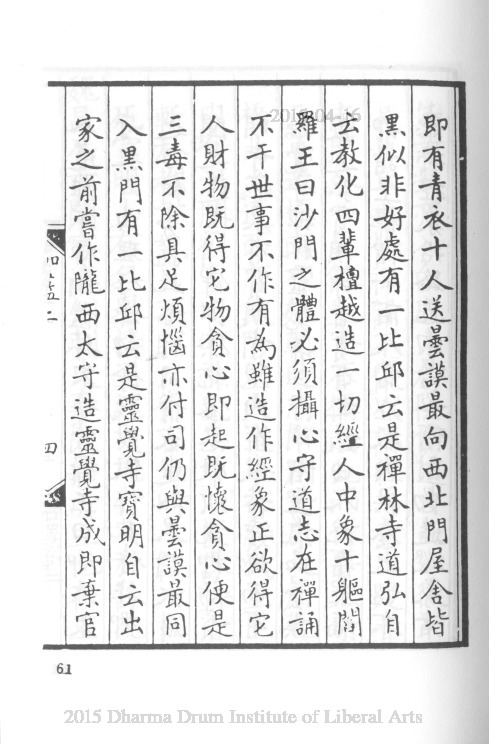 即有青衣十人送曇謨最向西北門屋舍皆
黑似非好處有一比邱云是禪林寺道弘自
云教化四輩檀越造一切經人中象十軀閻
羅王曰沙門之體必須攝心守道志在禪誦
不干世事不作有為雖造作經象正欲得它
人財物既得它物貪心即起既懷貪心便是
三毒不除具足煩惱亦付司仍與曇謨最同
入黑門有一比邱云是靈覺寺寶明自云出
家之前嘗作隴西太守造靈覺寺成即棄官
二
四
61
2015-04-16
2015 Dharma Drum Institute of Liberal Arts